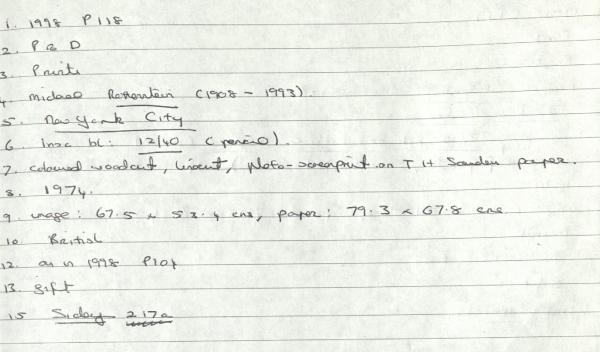 1. 1998 P118
2. P & D
3. Prints
4. Michael Rothenstein (1908 - 1993).
5. New York City
6. Insc bl: 12/40 (pencil).
7. Coloured woodcut, linocut, photo-screenprint on T H Saunders paper.
8. 1974.
9. image: 67.5 x 53.4 cms, paper: 79.3 x 67.8 cms
10. British
12. as in 1998 P107
13. gift
15 Siday 217a